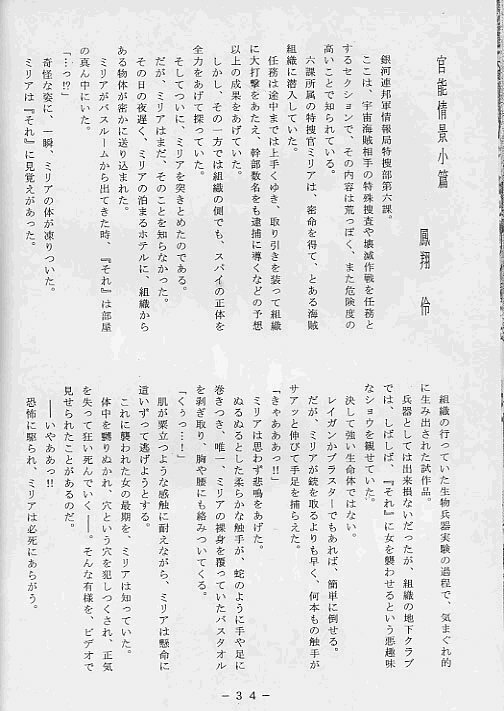 官能情景小篇
鳳翔　伶
銀河連邦軍情報局特捜部第六課。
ここは、宇宙海賊相手の特殊捜査や壊滅作戦を任務と
するセクションで、その内容は荒っぽく、また危険度の
高いことで知られている。
六課所属の特捜官ミリアは、密命を得て、とある海賊
組織に潜入していた。
任務は途中までは上手くゆき、取り引きを装って組織
に大打撃をあたえ、幹部数名をも逮捕に導くなどの予想
以上の成果をあげていた。
しかし、その一方では組織の側でも、スパイの正体を
全力をあげて探っていた。
そしてついに、ミリアを突きとめたのである。
だが、ミリアはまだ、そのことを知らなかった。
その日の夜遅く、ミリアの泊まるホテルに、組織から
ある物体が密かに送り込まれた。
ミリアがバスルームから出てきた時、『それ』は部屋
の真ん中にいた。
「…っ!?」
奇怪な姿に、一瞬、ミリアの体が凍りついた。
ミリアは『それ』に見覚えがあった。
組織の行っていた生物兵器実験の過程で、気まぐれ的
に生み出された試作品。
兵器としては出来損ないだったが、組織の地下クラブ
では、しばしば、『それ』に女を襲わせるという悪趣味
なショウを観せていた。
決して強い生命体ではない。
レイガンかブラスターでもあれば、簡単に倒せる。
だが、ミリアが銃を取るよりも早く、何本もの触手が
サアッと伸びて手足を捕らえた。
「きゃあああっ!!」
ミリアは思わず悲鳴をあげた。
ぬるぬるとした柔らかな触手が、蛇のように手や足に
巻きつき、唯一、ミリアの裸身を覆っていたバスタオル
を剥ぎ取り、胸や腰にも絡みついてくる。
「くぅっ…！」
肌が粟立つような感触に耐えながら、ミリアは懸命に
這いずって逃げようとする。
これに襲われた女の最期を、ミリアは知っていた。
体中を嬲りぬかれ、穴という穴を犯しつくされ、正気
を失って狂い死んでいく――。そんな有様を、ビデオで
見せられたことがあるのだ。
――いやああっ!!
恐怖に駆られ、ミリアは必死にあらがう。
－34－